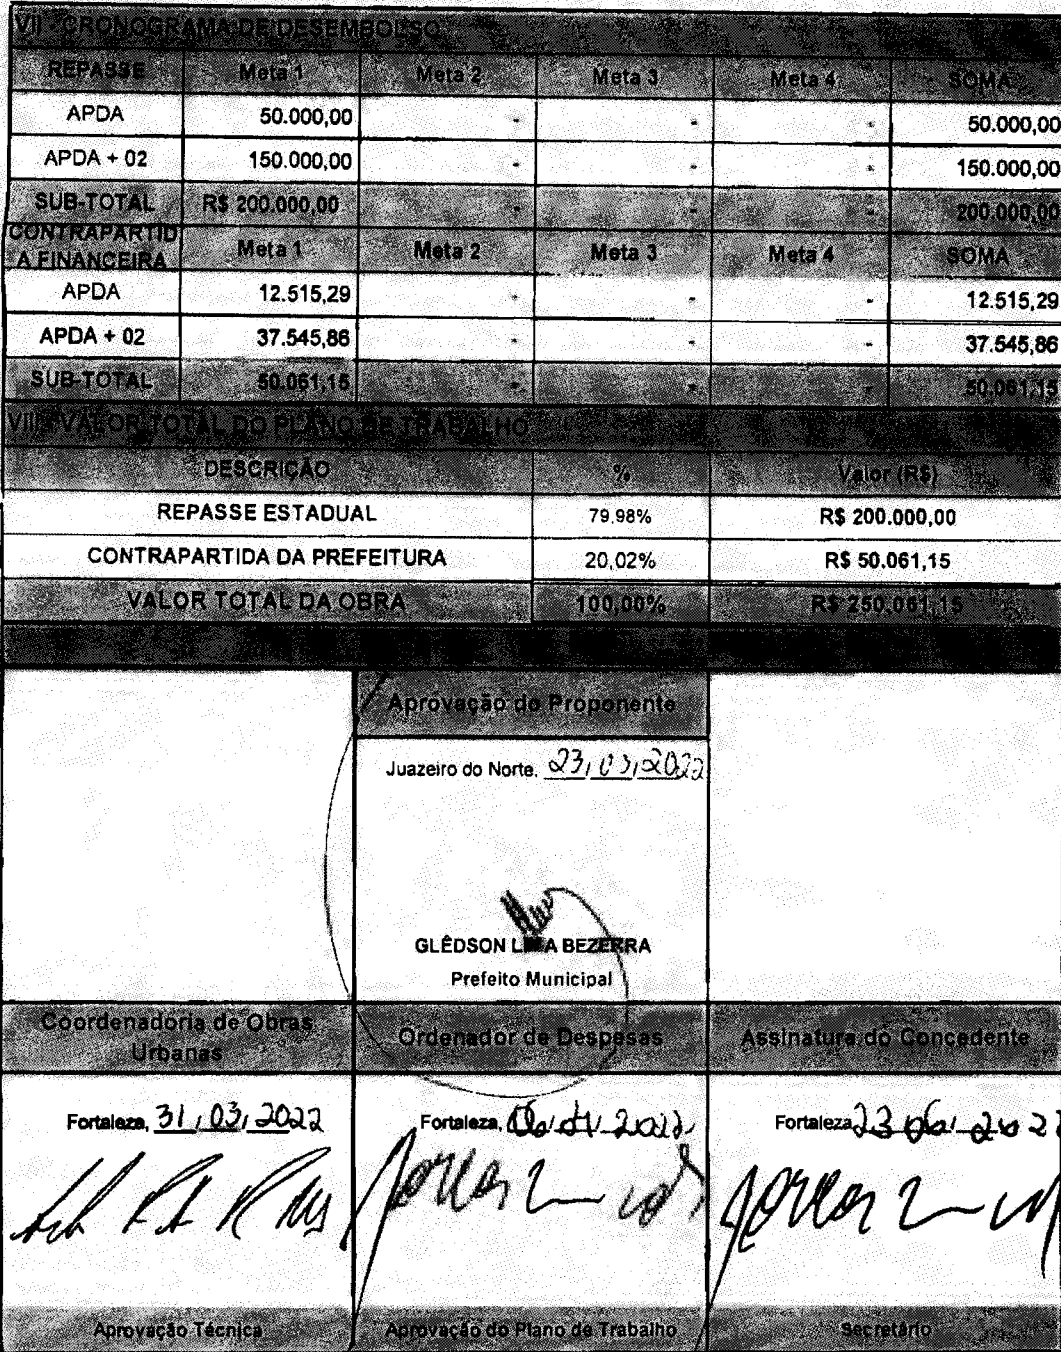 VII - CRONOGRAMA DE DESEMBOLSO
REPASSE Meta 1 Meta 2 Meta 3 Meta 4 SOMA
APDA 50.000,00 - - - 50.000,00
APDA + 02 150.000,00 - - - 150.000,00
SUB-TOTAL R$ 200.000,00 - - - 200.000,00
CONTRAPARTID
A FINANCEIRA Meta 1 Meta 2 Meta 3 Meta 4 SOMA
APDA 12.515,29 - - - 12.515,29
APDA + 02 37.545,86 - - - 37.545,86
SUB-TOTAL 50.061,15 - - - 50.061,15
VIII - VALOR TOTAL DO PLANO DE TRABALHO
DESCRIÇÃO % Valor (R$)
REPASSE ESTADUAL 79,98% R$ 200.000,00
CONTRAPARTIDA DA PREFEITURA 20,02% R$ 50.061,15
VALOR TOTAL DA OBRA 100,00% R$ 250.061,15
Aprovação do Proponente
Juazeiro do Norte, 23/03/2022
GLÊDSON LIMA BEZERRA
Prefeito Municipal
Coordenadoria de Obras Urbanas Ordenador de Despesas Assinatura do Concedente
Fortaleza, 31/03/2022 Fortaleza, 06/04/2022 Fortaleza 23/06/202
Aprovação Técnica Aprovação do Plano de Trabalho Secretário